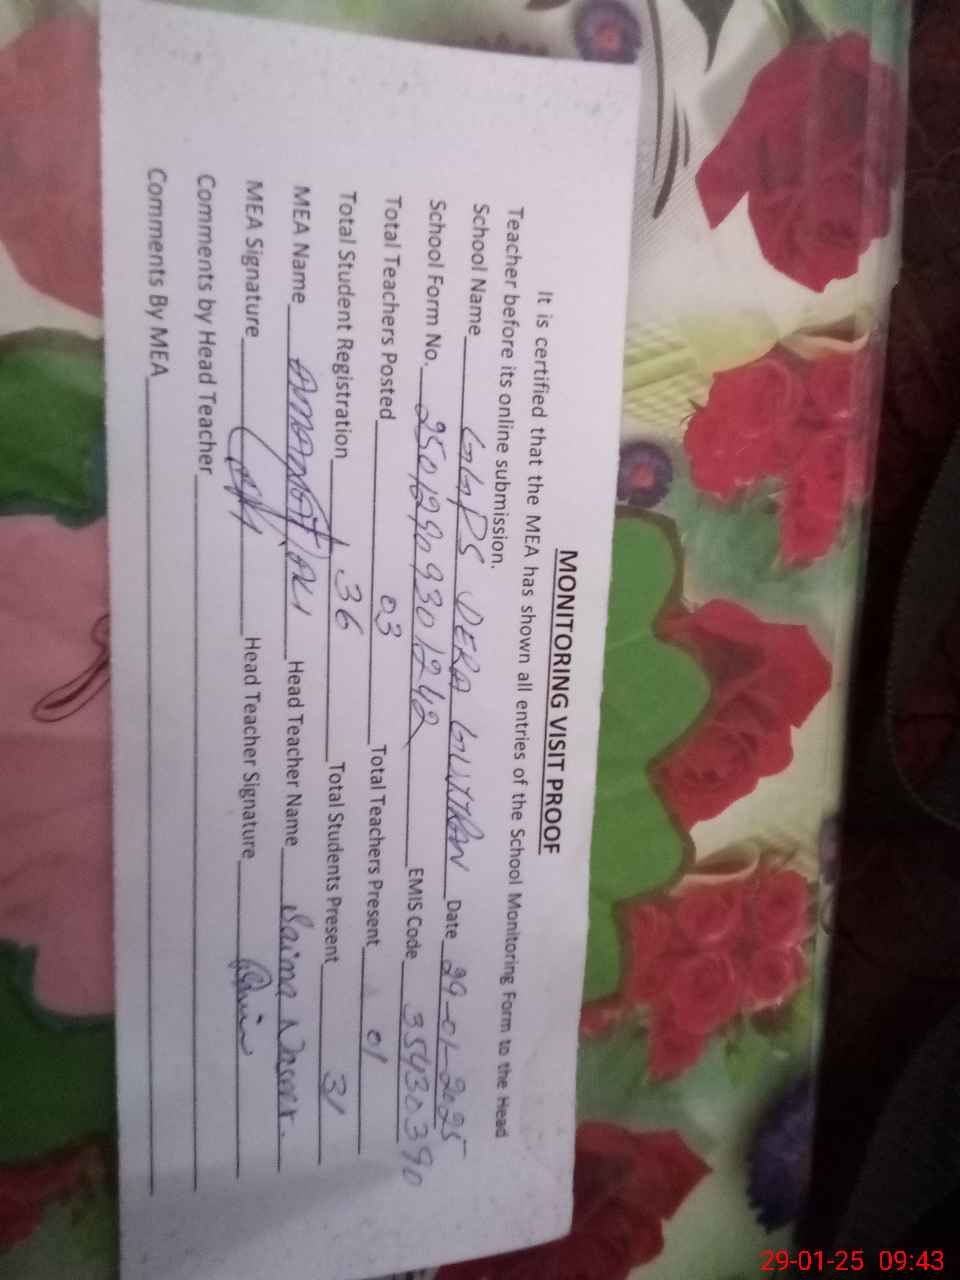 MONITORING VISIT PROOF
It is certified that the MEA has shown all entries of the School Monitoring Form to the Head
Teacher before its online submission.
School Name GGPS DERA GUJJRAN Date 29-01-2025
School Form No. 25012909301242 EMIS Code 35430390
Total Teachers Posted 03 Total Teachers Present 01
Total Student Registration 36 Total Students Present 31
MEA Name AMANAT ALI Head Teacher Name Saima Naseer.
MEA Signature Head Teacher Signature
Comments by Head Teacher
Comments By MEA
29-01-25 09:43